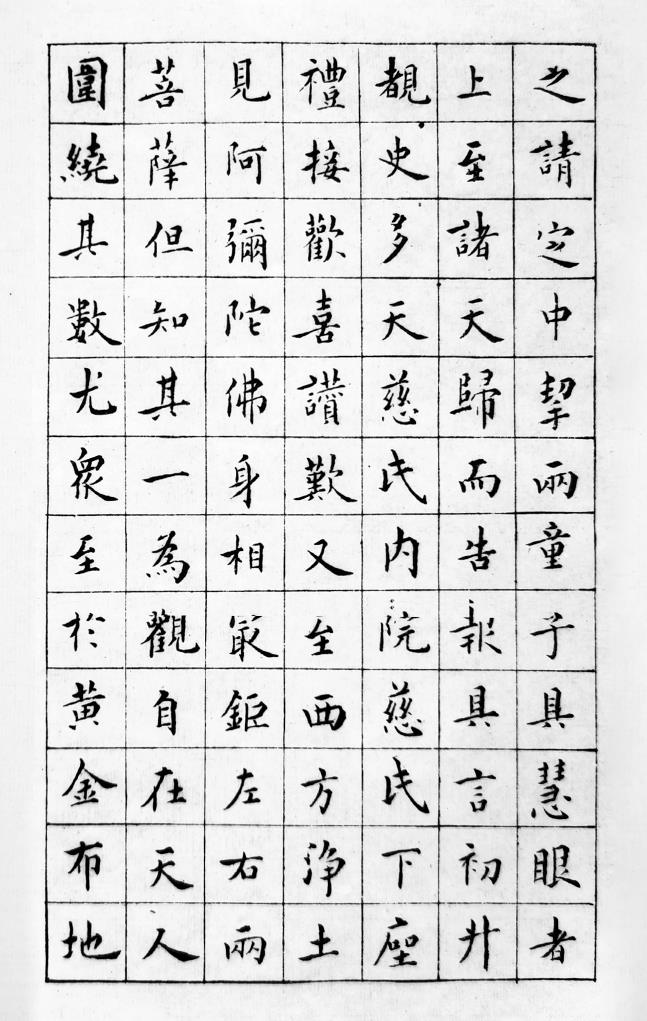 之請定中挈兩童子具慧眼者
上至諸天歸而告報具言初升
覩史多天慈氏内院慈氏下座
禮接歡喜讃歎又至西方淨土
見阿彌陀佛身相最鉅左右兩
菩薩但知其一為觀自在天人
圍繞其數尤衆至於黄金布地